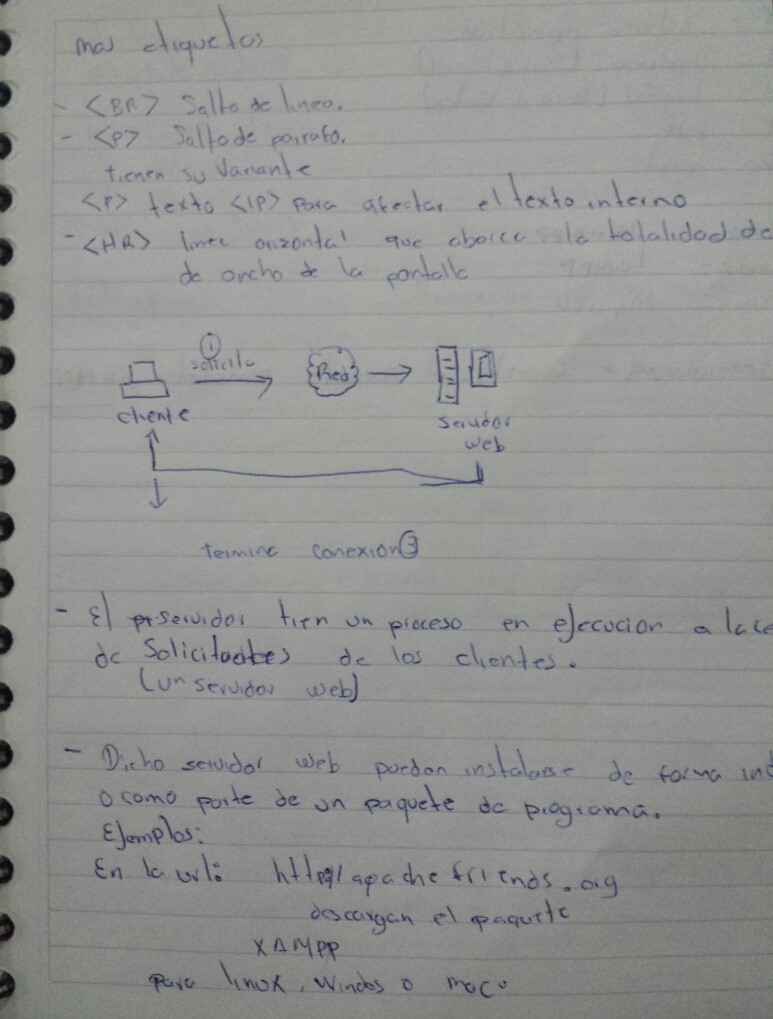 mas etiquetas
- <BR> Salto de linea.
- <P> Salto de parrafo.
tienen su variante
<P> texto </P> para afectar el texto interno
- <HR> linea orizontal que aborca la totalidad de
de ancho de la pantalla
①
solicita
Red
cliente
servidor
web
termina conexion ③
- El servidor tien un proceso en ejecucion a la
de Solicitudes de los clientes.
(un servidor web)
- Dicho servidor web puedan instalarse de forma ind
o como parte de un paquete de programa.
Ejemplos:
En la url: http://apachefriends.org
descargan el paquete
XAMPP
para linux, Windos o mac.